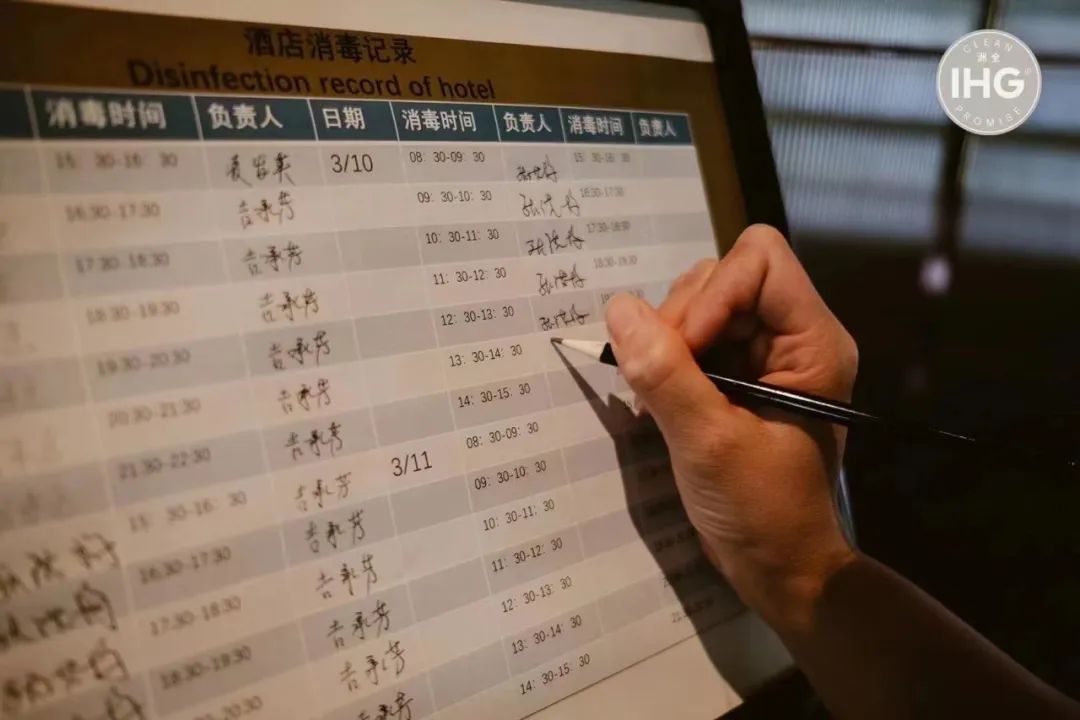 酒店消毒记录
Disinfection record of hotel
CLEAN
洲全
IHG®
PROMISE
消毒时间 负责人 日期 消毒时间 负责人 消毒时间 负责人
15: 30-16: 30 3/10 08: 30-09: 30 15: 30-16: 30
16:30-17:30 吉承芳 09: 30-10: 30 16:30-17:30
17:30-18:30 吉承芳 10: 30-11: 30 17:30-18:30
18:30-19:30 吉承芳 11: 30-12: 30 18:30-19:30
19:30-20:30 吉承芳 12: 30-13: 30
20:30-21:30 吉承芳 13: 30-14: 30
21:30-22:30 吉承芳 14: 30-15: 30
15: 30-16: 30 吉承芳 3/11 08: 30-09: 30
16:30-17:30 吉承芳 09: 30-10: 30
17:30-18:30 吉承芳 10: 30-11: 30
18:30-19:30 吉承芳 11: 30-12: 30
吉承芳 12: 30-13: 30
13: 30-14: 30
14: 30-15: 30